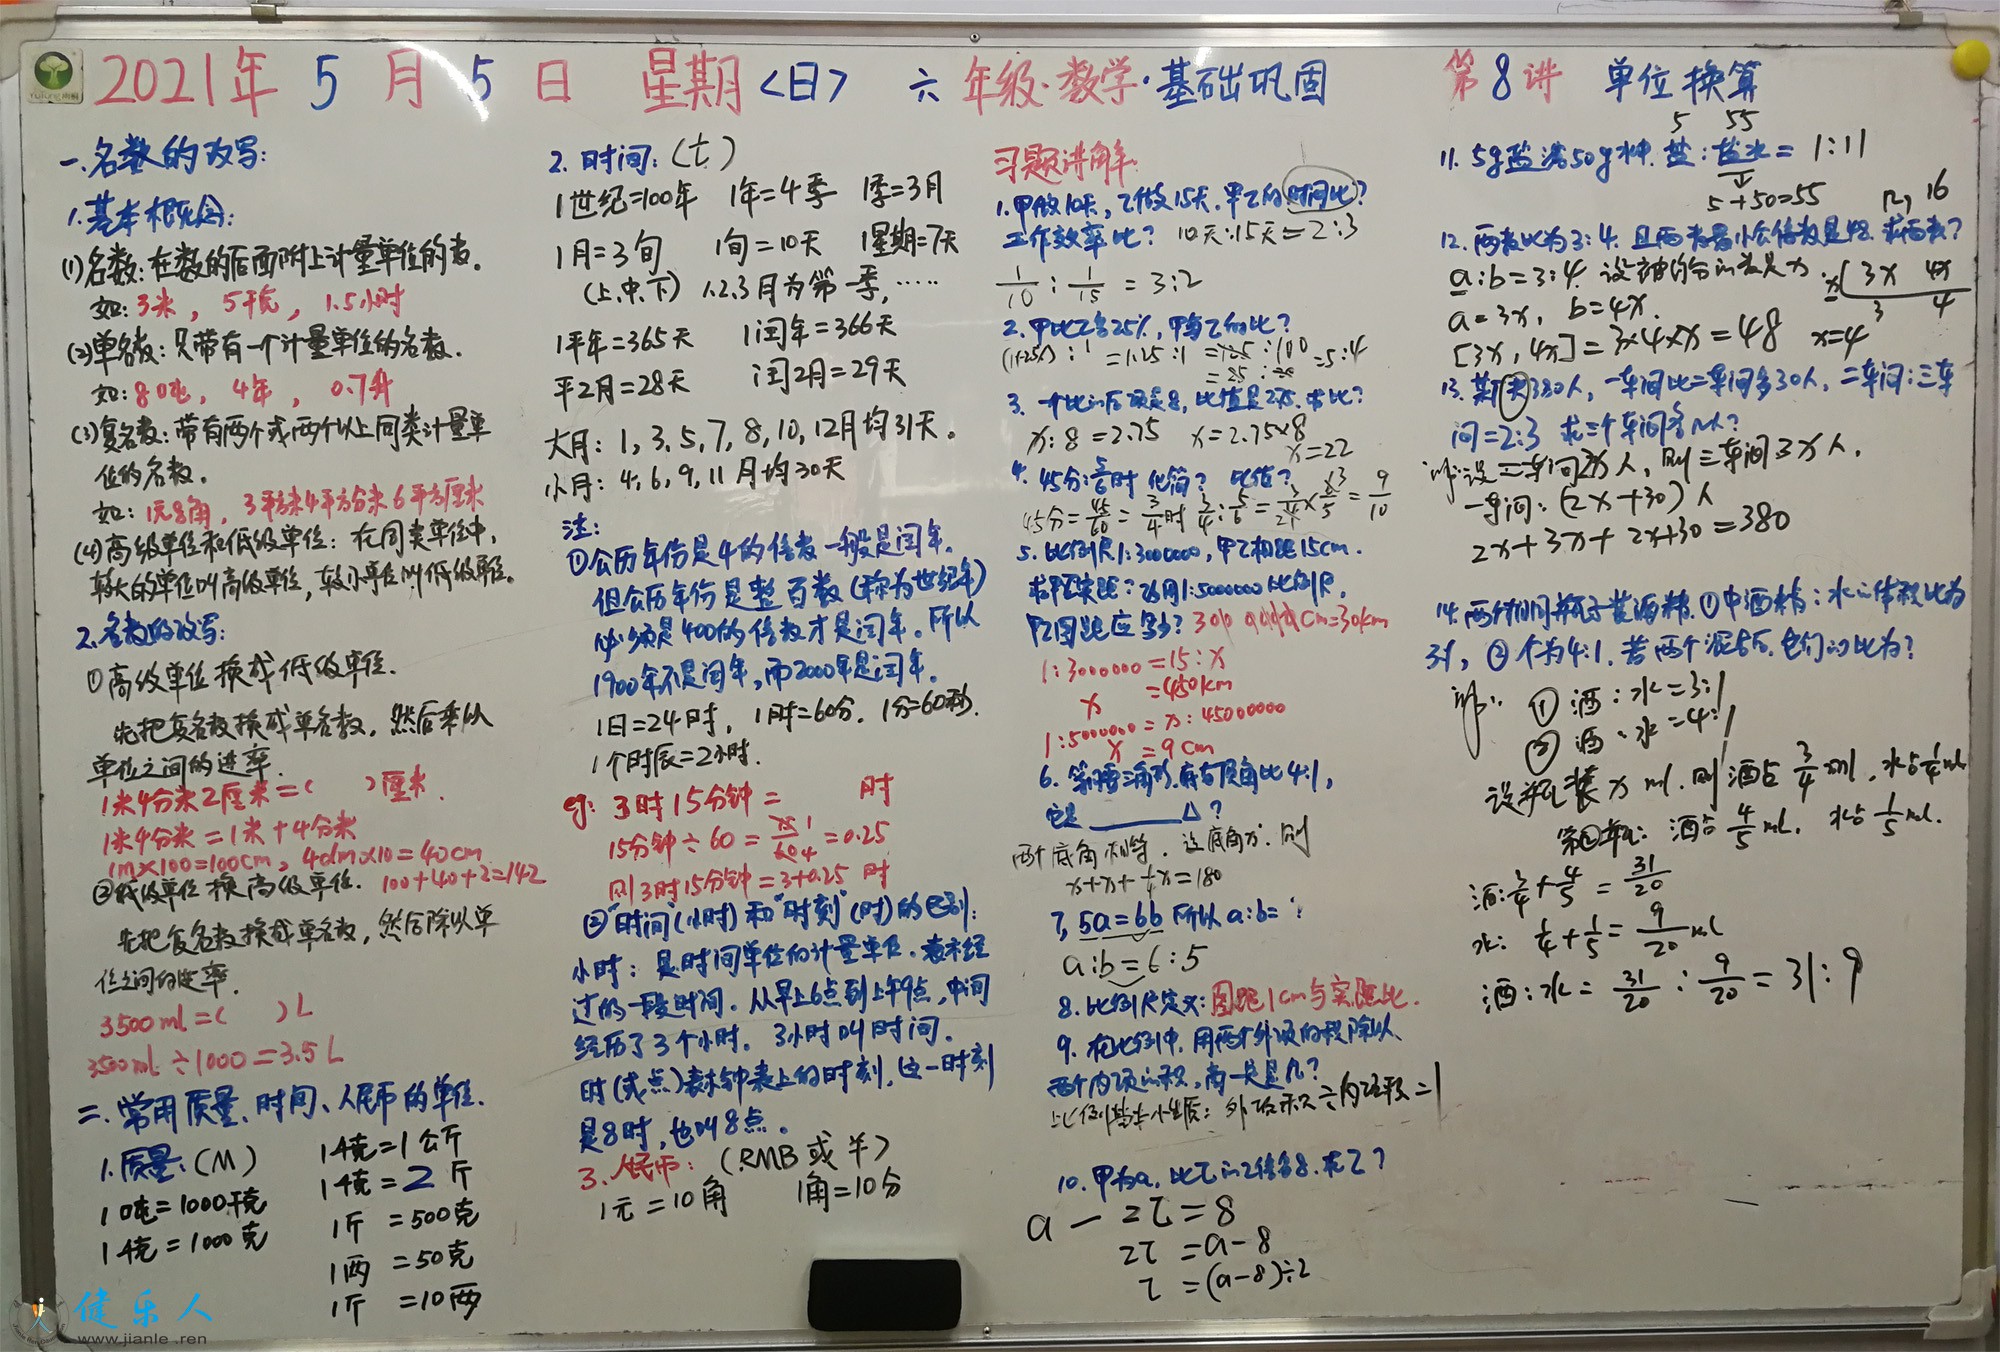 2021年 5 月 5 日 星期<日> 六年级·数学·基础巩固 第8讲 单位换算
一.名数的改写:
1.基本概念:
(1)名数:在数的后面附上计量单位的数。
如:3米, 5千克, 1.5小时
(2)单名数:只带有一个计量单位的名数.
如:80吨, 4年, 0.7升
(3)复名数:带有两个或两个以上同类计量单
位的名数.
如:1元8角,3平方米4平方分米6平方厘米
(4)高级单位和低级单位:在同类单位中,
较大的单位叫高级单位,较小单位叫低级单位。
2.名数的改写:
①高级单位换成低级单位.
先把复名数换成单名数,然后乘以
单位之间的进率.
1米4分米2厘米=( )厘米.
1米4分米=1米+4分米
1m×100=100cm, 4dm×10=40cm
100+40+2=142
②低级单位换高级单位.
先把复名数换成单名数,然后除以单
位之间的进率.
3500ml=( )L
3500ml÷1000=3.5L
二.常用质量、时间、人民币的单位.
1.质量:(M)
1吨=1000千克
1千克=1000克
1千克=1公斤
1千克=2斤
1斤=500克
1两=50克
1斤=10两
2.时间:(t)
1世纪=100年 1年=4季 1季=3月
1月=3旬 1旬=10天 1星期=7天
(上.中.下) 1.2.3月为第一季,……
1平年=365天 1闰年=366天
平2月=28天 闰2月=29天
大月:1,3,5,7,8,10,12月均31天。
小月:4,6,9,11月均30天
注:
①公历年份是4的倍数一般是闰年.
但公历年份是整百数(称为世纪年)
必须是400的倍数才是闰年。所以
1900年不是闰年,而2000年是闰年.
1日=24时, 1时=60分. 1分=60秒.
1个时辰=2小时.
eg: 3时15分钟= 时
15分钟÷60=15/60=1/4=0.25
则3时15分钟=3+0.25 时
②"时间"(小时)和"时刻"(时)的区别:
小时:是时间单位的计量单位.表示经
过的一段时间.从早上6点到上午9点,中间
经历了3个小时. 3小时叫时间.
时(或点)表示钟表上的时刻,这一时刻
是8时,也叫8点。
3.人民币:(RMB或¥)
1元=10角 1角=10分
习题讲解:
1.甲做10天,乙做15天.甲乙的时间比?
工作效率比? 10天:15天=2:3
1/10:1/15=3:2
2.甲比乙多25%,甲与乙的比?
(1+25%):1=1.25:1=125:100=5:4
=25:20
3.一个比的后项是8,比值是2.75.求比?
x:8=2.75 x=2.75×8
x=22
4.45分:5/6时 化简? 比值?
45分=45/60=3/4时 3/4:5/6=3/4×6/5=9/10
5.比例尺1:3000000,甲乙相距15cm.
求甲乙实距?改用1:5000000比例尺,
甲乙图距应多少? cm=30km
1:3000000=15:x
x=450km
1:5000000=x:45000000
x=9cm
6.等腰三角形.底与顶角比4:1,
它是______△?
两个底角相等.设底角x.则
x+x+1/4x=180
7,5a=6b 所以a:b=?
a:b=6:5
8.比例尺定义:图距1cm与实距比.
9.在比例中.用两个外项的积除以
两个内项的积,商一定是几?
比例基本性质:外项积÷内项积=1
10.甲为a,比乙的2倍多8.求乙?
a-2乙=8
2乙=a-8
乙=(a-8)÷2
5 55
11.5g盐溶50g水中.盐:盐水=1:11
5+50=55
12.两数比为3:4.且两数最小公倍数是48.求两数?
12,16
a:b=3:4.设每份的数是x.
x 3x 4x
3 4
a=3x, b=4x.
[3x,4x]=3×4×x=48 x=4
13.某厂共380人,一车间比二车间多30人,二车间:三车
间=2:3 求三个车间各几人?
解:设二车间2x人,则三车间3x人.
一车间:(2x+30)人
2x+3x+2x+30=380
14.两个相同瓶子装酒精.①中酒精:水的体积比为
3:1,②个为4:1.若两个混合后.它们的比为?
解:①酒:水=3:1
②酒:水=4:1
设瓶装x ml.则酒占3/4ml,水占1/4ml
第②瓶:酒占4/5ml. 水占1/5ml.
酒:3/4+4/5=31/20
水:1/4+1/5=9/20ml
酒:水=31/20:9/20=31:9
健乐人
www.jianle.ren